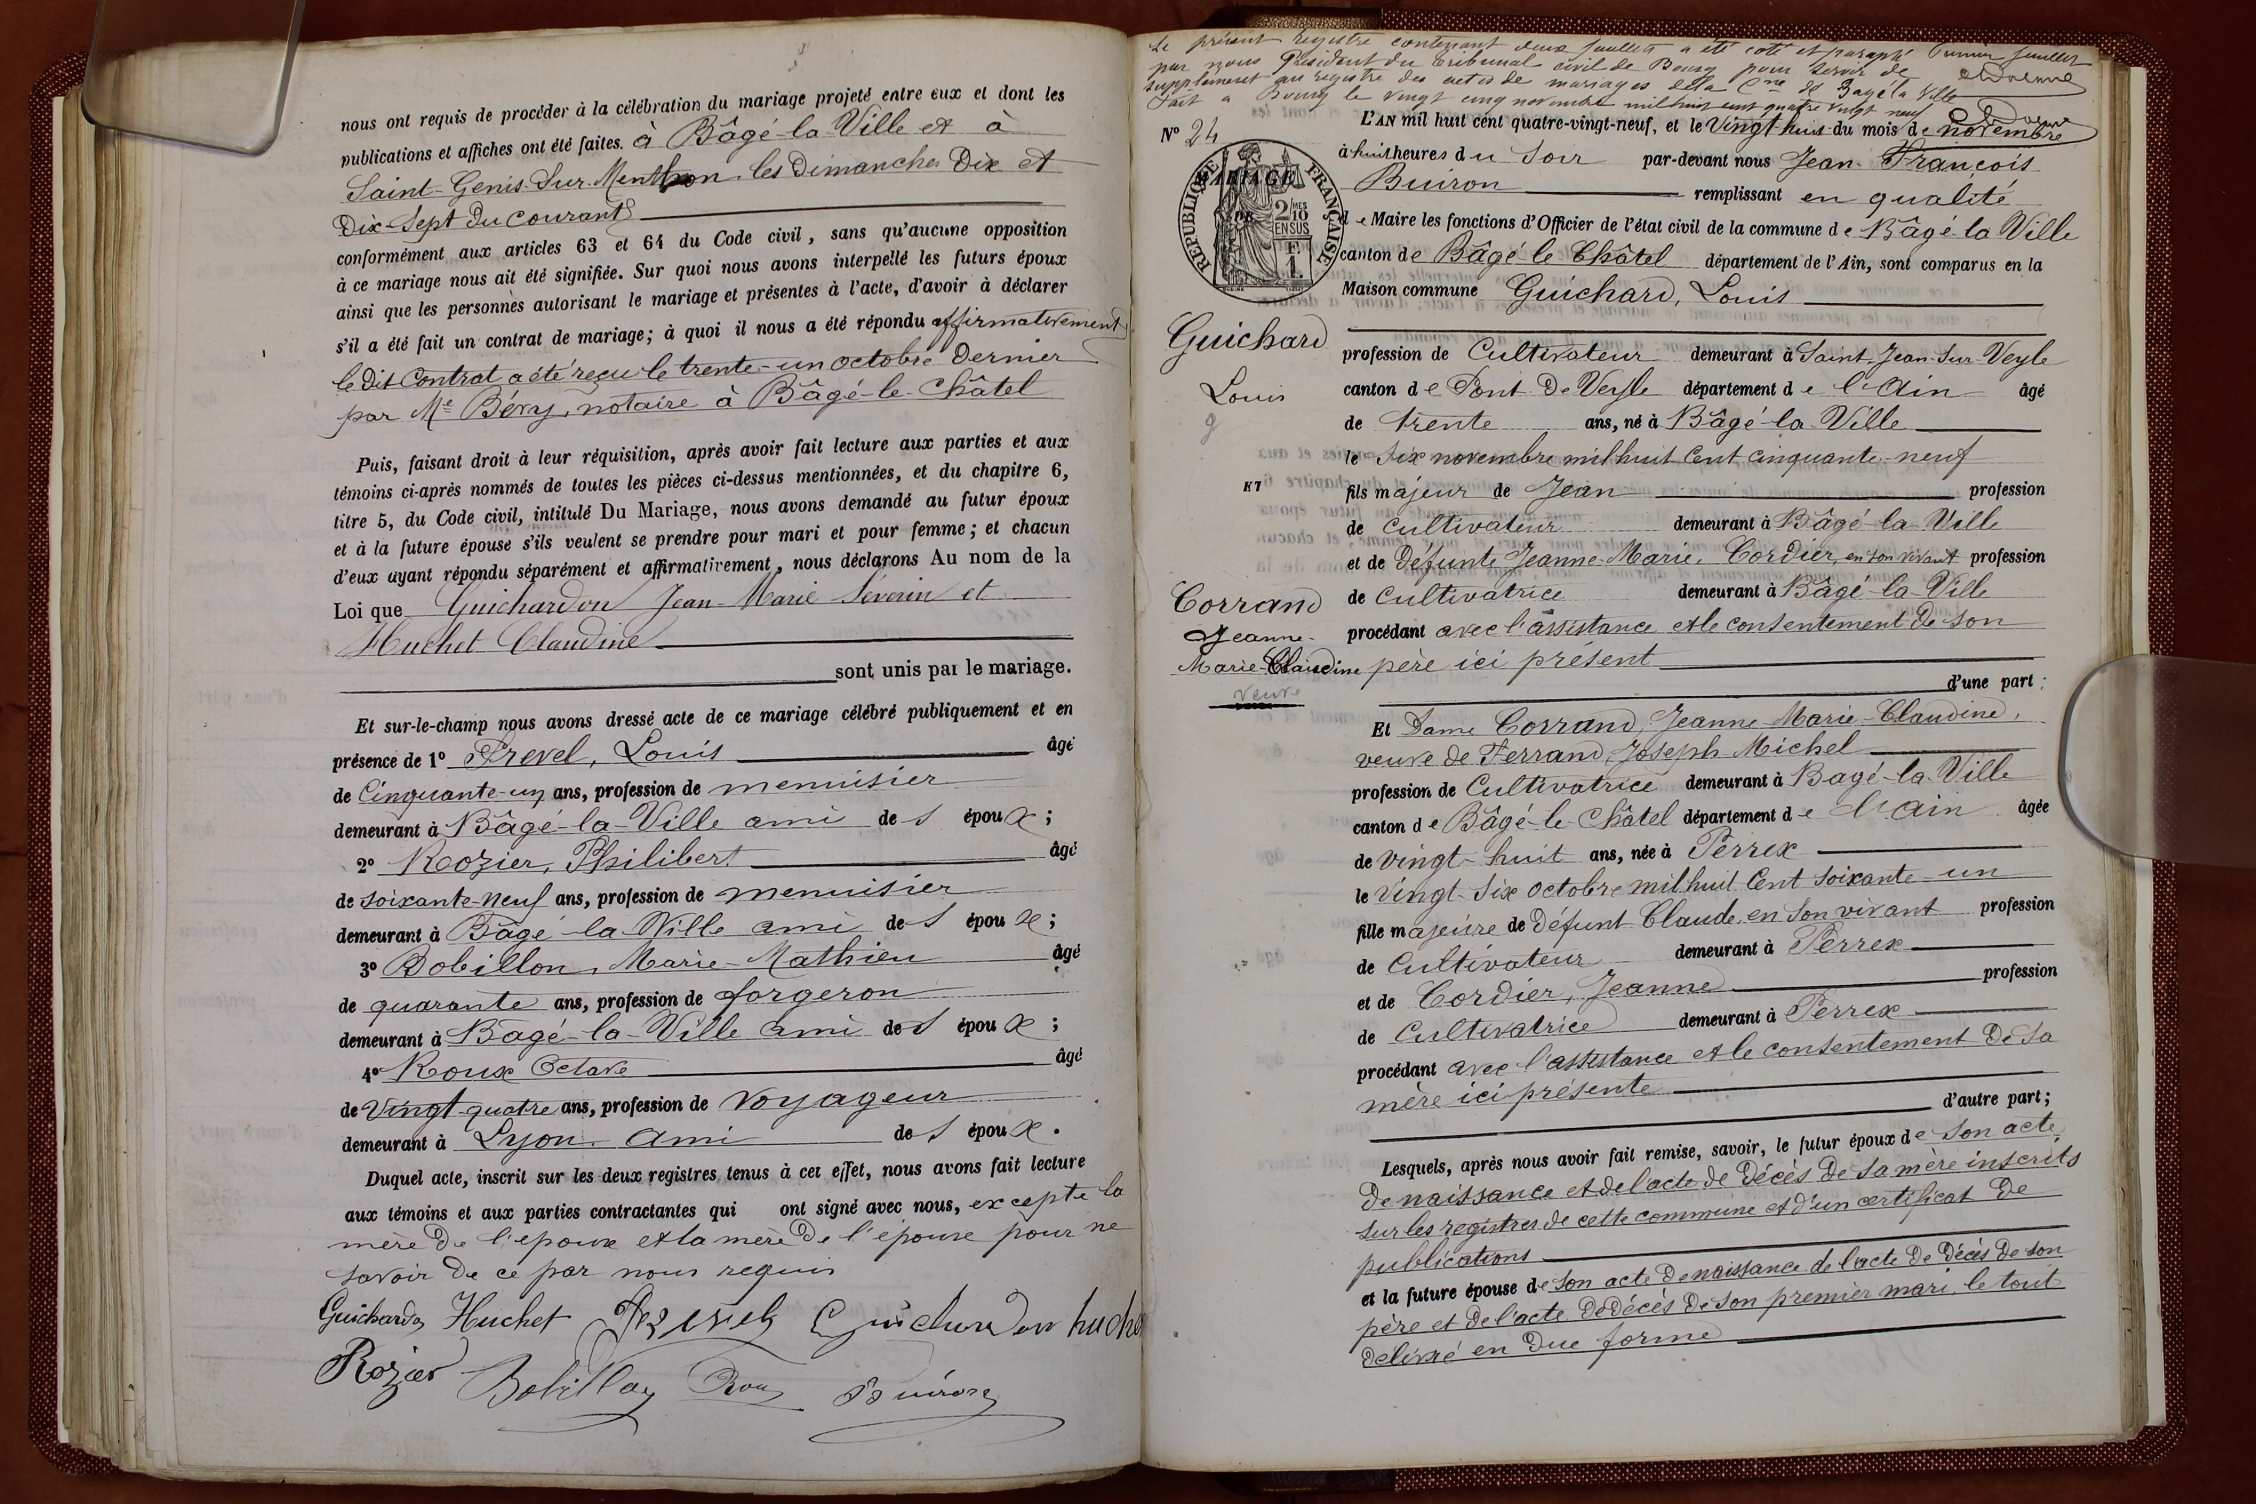 nous ont requis de procéder à la célébration du mariage projeté entre eux et dont les
publications et affiches ont été faites. à Bâgé-la Ville et à
Saint-Genis-Sur-Menthon les dimanches Dix et
Dix-Sept du courant
conformément aux articles 63 et 64 du Code civil, sans qu'aucune opposition
à ce mariage nous ait été signifiée. Sur quoi nous avons interpellé les futurs époux
ainsi que les personnes autorisant le mariage et présentes à l'acte, d'avoir à déclarer
s'il a été fait un contrat de mariage; à quoi il nous a été répondu affirmativement
le dit Contrat a été reçu le trente-un octobre dernier
par Me Béry, notaire à Bâgé-le-Châtel
Puis, faisant droit à leur réquisition, après avoir fait lecture aux parties et aux
témoins ci-après nommés de toutes les pièces ci-dessus mentionnées, et du chapitre 6,
titre 5, du Code civil, intitulé Du Mariage, nous avons demandé au futur époux
et à la future épouse s'ils veulent se prendre pour mari et pour femme; et chacun
d'eux ayant répondu séparément et affirmativement, nous déclarons Au nom de la
Loi que Guichardon Jean-Marie Séverin et
Huchet Claudine
sont unis par le mariage.
Et sur-le-champ nous avons dressé acte de ce mariage célébré publiquement et en
présence de 1º Prevel, Louis âgé
de Cinquante-un ans, profession de menuisier
demeurant à Bâgé-la-Ville ami des époux;
2º Rozier, Philibert âgé
de soixante-neuf ans, profession de menuisier
demeurant à Bâgé-la-Ville ami des époux;
3º Bobillon, Marie-Mathieu âgé
de quarante ans, profession de forgeron
demeurant à Bâgé-la-Ville ami des époux;
4º Roux Octave âgé
de Vingt-quatre ans, profession de voyageur
demeurant à Lyon ami des époux.
Duquel acte, inscrit sur les deux registres tenus à cet effet, nous avons fait lecture
aux témoins et aux parties contractantes qui ont signé avec nous, excepté la
mère de l'époux et la mère de l'épouse pour ne
savoir de ce par nous requis
Guichardon Huchet Prevel Guichardon huchet
Rozier Bobillon Roux Buiron
Le présent registre contenant deux feuillets a été coté et paraphé Premier feuillet
par nous Président du Tribunal civil de Bourg pour servir de
supplément au registre des actes de mariages de la Cne de Bagé la Ville
Fait à Bourg le vingt cinq novembre mil huit cent quatre vingt neuf
Nº 24
L'AN mil huit cent quatre-vingt-neuf, et le Vingt huit du mois de novembre
à huit heures du Soir par-devant nous Jean-François
Buiron remplissant en qualité
de Maire les fonctions d'Officier de l'état civil de la commune de Bâgé-la Ville
canton de Bâgé-le-Châtel département de l'Ain, sont comparus en la
Maison commune Guichard, Louis
MARIAGE
DE
RÉPUBLIQUE FRANÇAISE
2/10 MES
EN SUS
1 F.
Guichard
Louis
profession de Cultivateur demeurant à Saint-Jean-Sur-Veyle
canton de Pont-De-Veyle département de l'Ain âgé
de trente ans, né à Bâgé-la-Ville
le Six novembre mil huit Cent cinquante-neuf
ET
fils majeur de Jean profession
de cultivateur demeurant à Bâgé-la-Ville
et de Défunte Jeanne-Marie Cordier, en son vivant profession
de cultivatrice demeurant à Bâgé-la-Ville
procédant avec l'assistance et le consentement de son
père ici présent
d'une part:
Corrand
Jeanne-
Marie-Claudine
veuve
Et Dame Corrand, Jeanne-Marie-Claudine,
veuve de Ferrand, Joseph Michel
profession de Cultivatrice demeurant à Bagé-la-Ville
canton de Bâgé-le-Châtel département de l'ain âgée
de vingt-huit ans, née à Perrex
le Vingt-Six octobre mil huit Cent soixante-un
fille majeure de Défunt Claude, en son vivant profession
de Cultivateur demeurant à Perrex
et de Cordier, Jeanne profession
de Cultivatrice demeurant à Perrex
procédant avec l'assistance et le consentement de sa
mère ici présente
d'autre part;
Lesquels, après nous avoir fait remise, savoir, le futur époux de son acte
de naissance et de l'acte de décès de sa mère inscrits
sur les registres de cette commune et d'un certificat de
publications
et la future épouse de son acte de naissance de l'acte de décès de son
père et de l'acte de décès de son premier mari, le tout
délivré en due forme